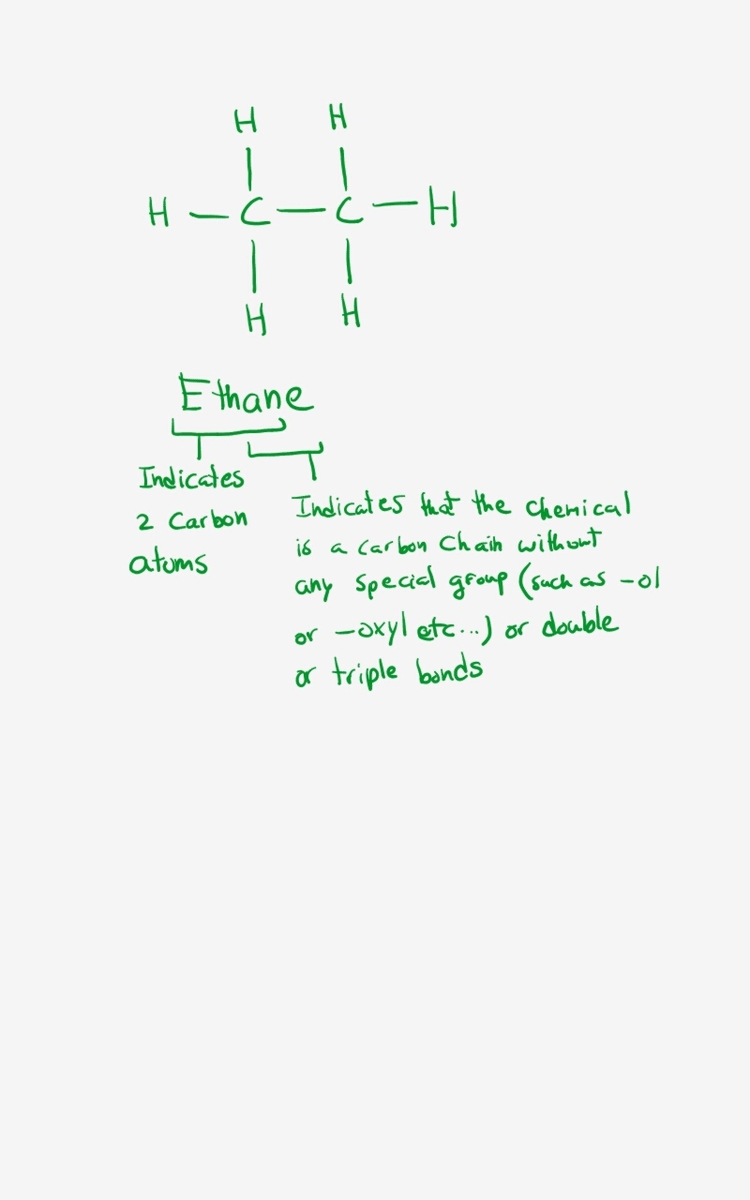 H H
H — C — C — H
H H
Ethane
Indicates
2 Carbon
atoms
Indicates that the chemical
is a carbon chain without
any special group (such as -ol
or -oxyl etc...) or double
or triple bonds